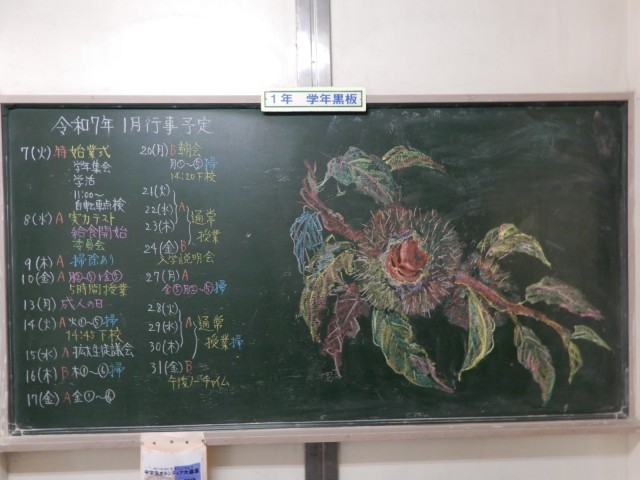 1年 学年黒板
令和7年 1月行事予定
7(火) 特 始業式
・学年集会
・学活
11:00～
自転車点検
8(水) A 実力テスト
給食開始
委員会
9(木) A 掃除あり
10(金) A
5時間授業
13(月) 成人の日
14(火) A 火①～⑤ 掃
14:45下校
15(水) A 拡大生徒議会
16(木) B 木①～⑥ 掃
17(金) A 金①～⑥
20(月) B 朝会
月①～⑤ 掃
14:20下校
21(火)
22(水) A 通常
23(木) 授業
24(金) B
入学説明会
27(月) A
金⑤月②～⑤ 掃
28(火)
29(水) A 通常
30(木) 授業 掃
31(金) B
午後ノーチャイム